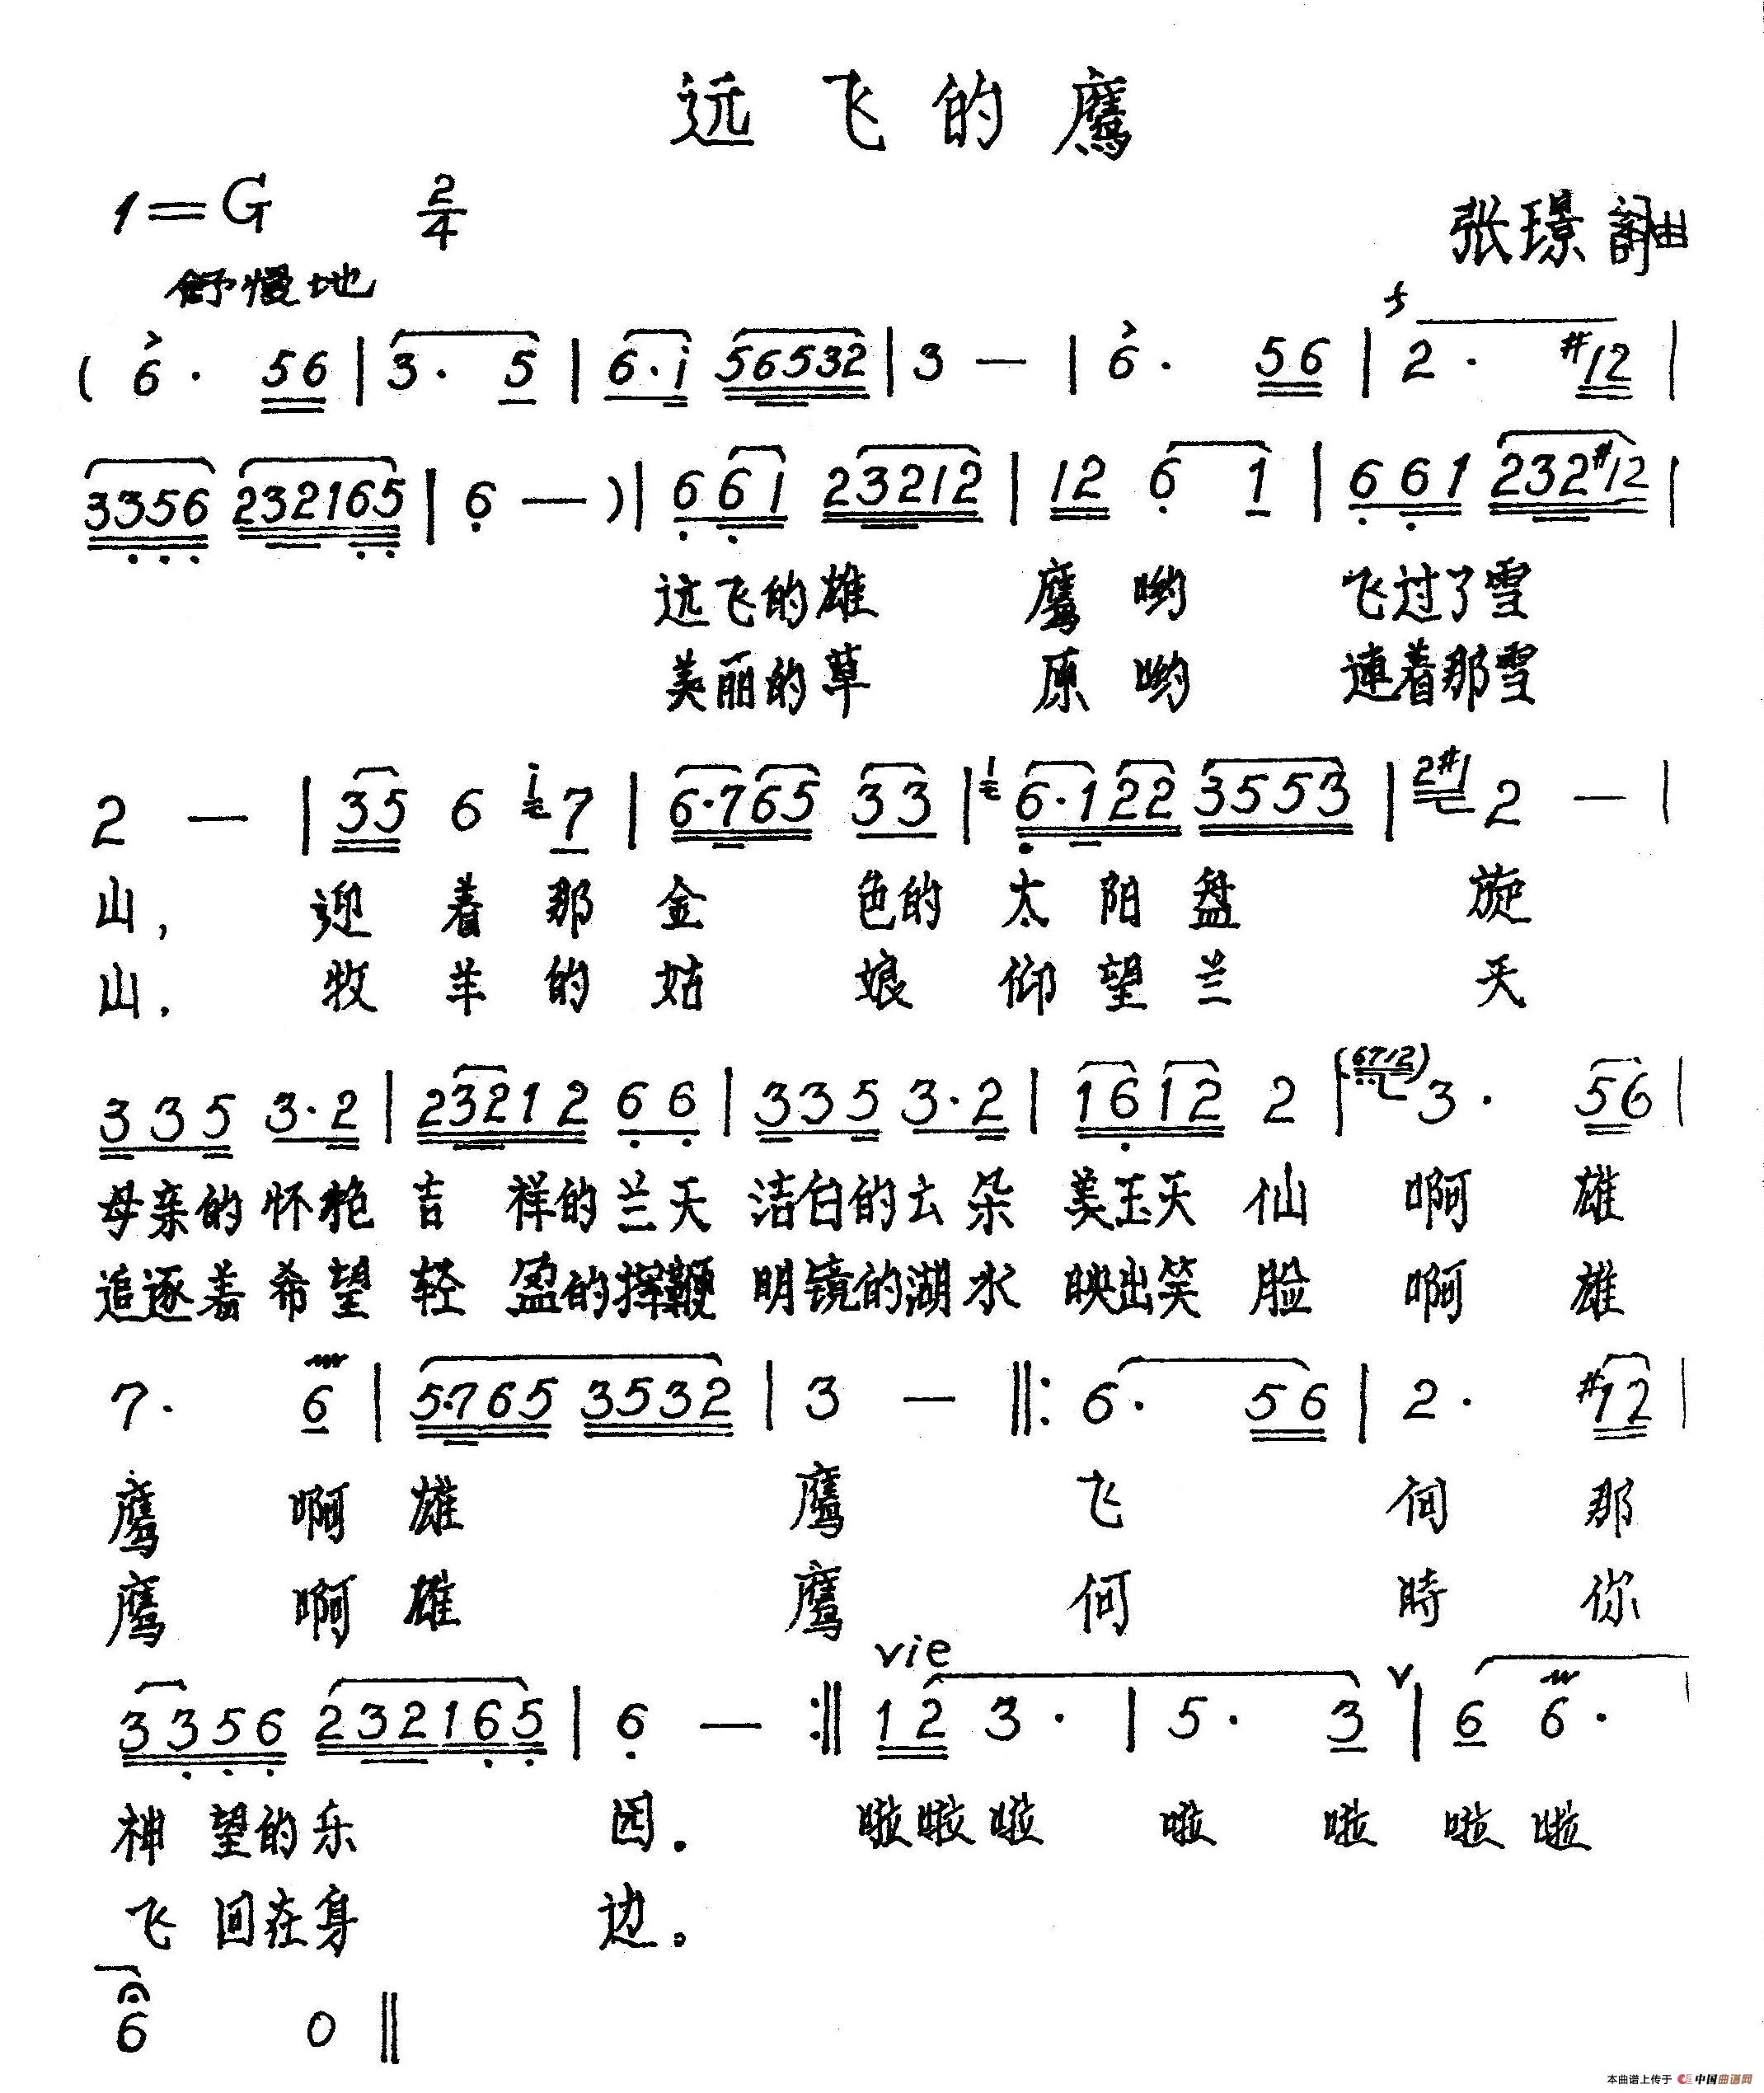 远飞的鹰
1=G 2/4
张璟 詞曲
舒慢地
5
( 6· 56 | 3· 5 | 6·i 56532 | 3 — | 6· 56 | 2· #12 |
3356 232165 | 6 — ) | 661 23212 | 12 6 1 | 661 232#12 |
远飞的雄 鹰 哟 飞过了雪
美丽的草 原 哟 連着那雪
2 — | 35 6 i 7 | 6·765 33 | 1 6·122 3553 | 2#1 2 — |
山, 迎 着 那 金 色的 太 阳 盘 旋
山, 牧 羊 的 姑 娘 仰 望 兰 天
335 3·2 | 23212 66 | 335 3·2 | 1612 2 | (6712) 3· 56 |
母亲的 怀抱 吉 祥的兰天 洁白的云朵 美玉天 仙 啊 雄
追逐着 希望 轻 盈的挥鞭 明镜的湖水 映出笑 脸 啊 雄
7· 6 | 5·765 3532 | 3 — ‖: 6· 56 | 2· #12 |
鹰 啊 雄 鹰 飞 向 那
鹰 啊 雄 鹰 何 時 你
vie
3356 232165 | 6 — :‖ 12 3· | 5· 3 V | 6 6·
神 望的乐 园. 啦啦啦 啦 啦 啦 啦
飞 回在身 边。
6 0 ‖
本曲谱上传于 中国曲谱网